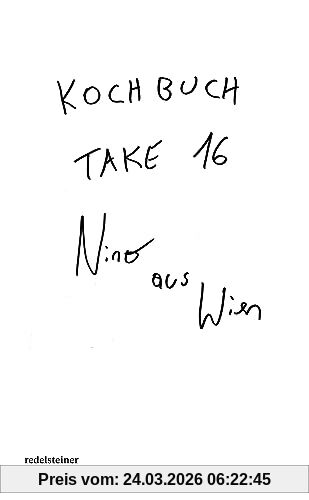 KOCHBUCH
TAKE 16
Nino
aus
Wien
redelsteiner
Preis vom: 24.03.2026 06:22:45